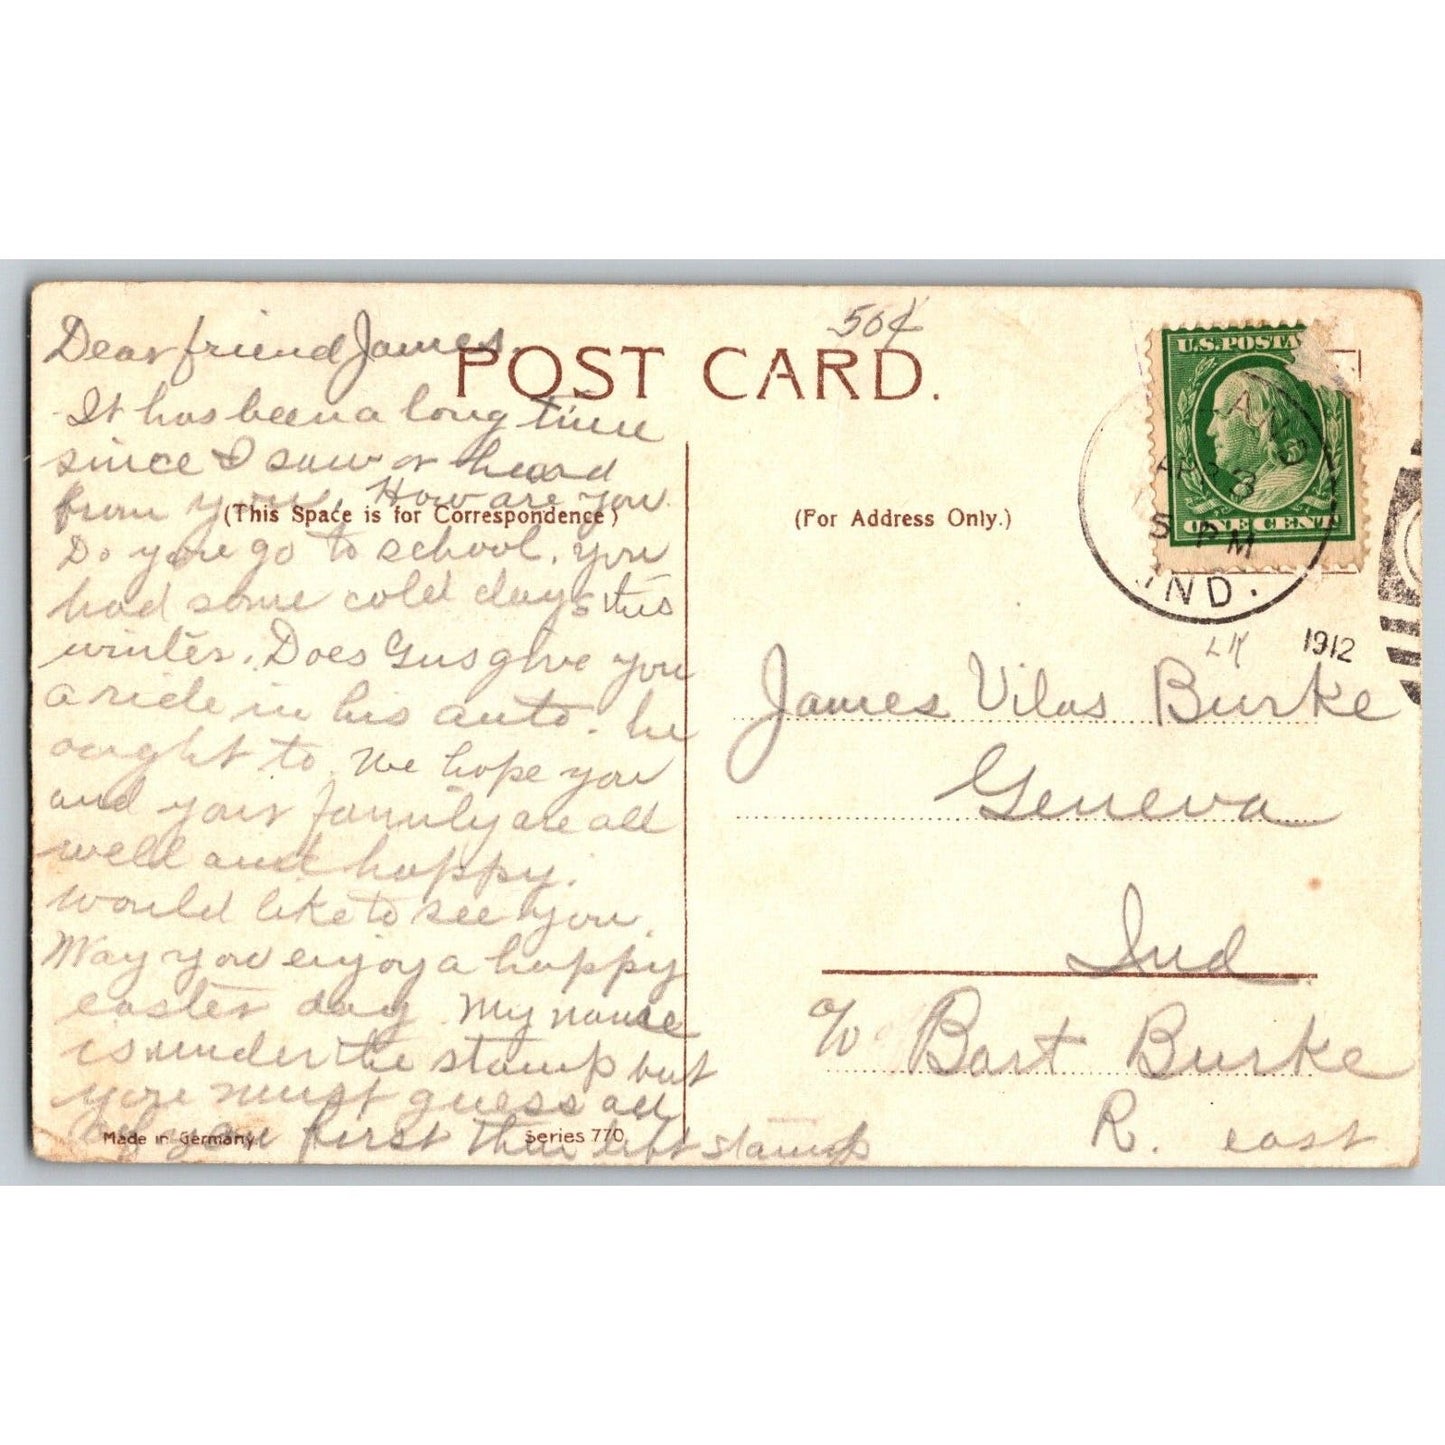 50¢
POST CARD.
Dear friend James.
It has been a long time
since I saw or heard
from you. How are you.
(This Space is for Correspondence)
Do you go to school. you
had some cold days this
winter. Does Gus give you
a ride in his auto. he
ought to. We hope you
and your family are all
well and happy.
would like to see you.
May you enjoy a happy
easter day. My name
is under the stamp but
you must guess all
of you first then lift stamp
Made in Germany
Series 770
(For Address Only.)
U.S. POSTA
ONE CENT
AP 3
5 PM
IND.
1912
James Vilas Burke
Geneva
Ind
c/o Bart Burke
R. east